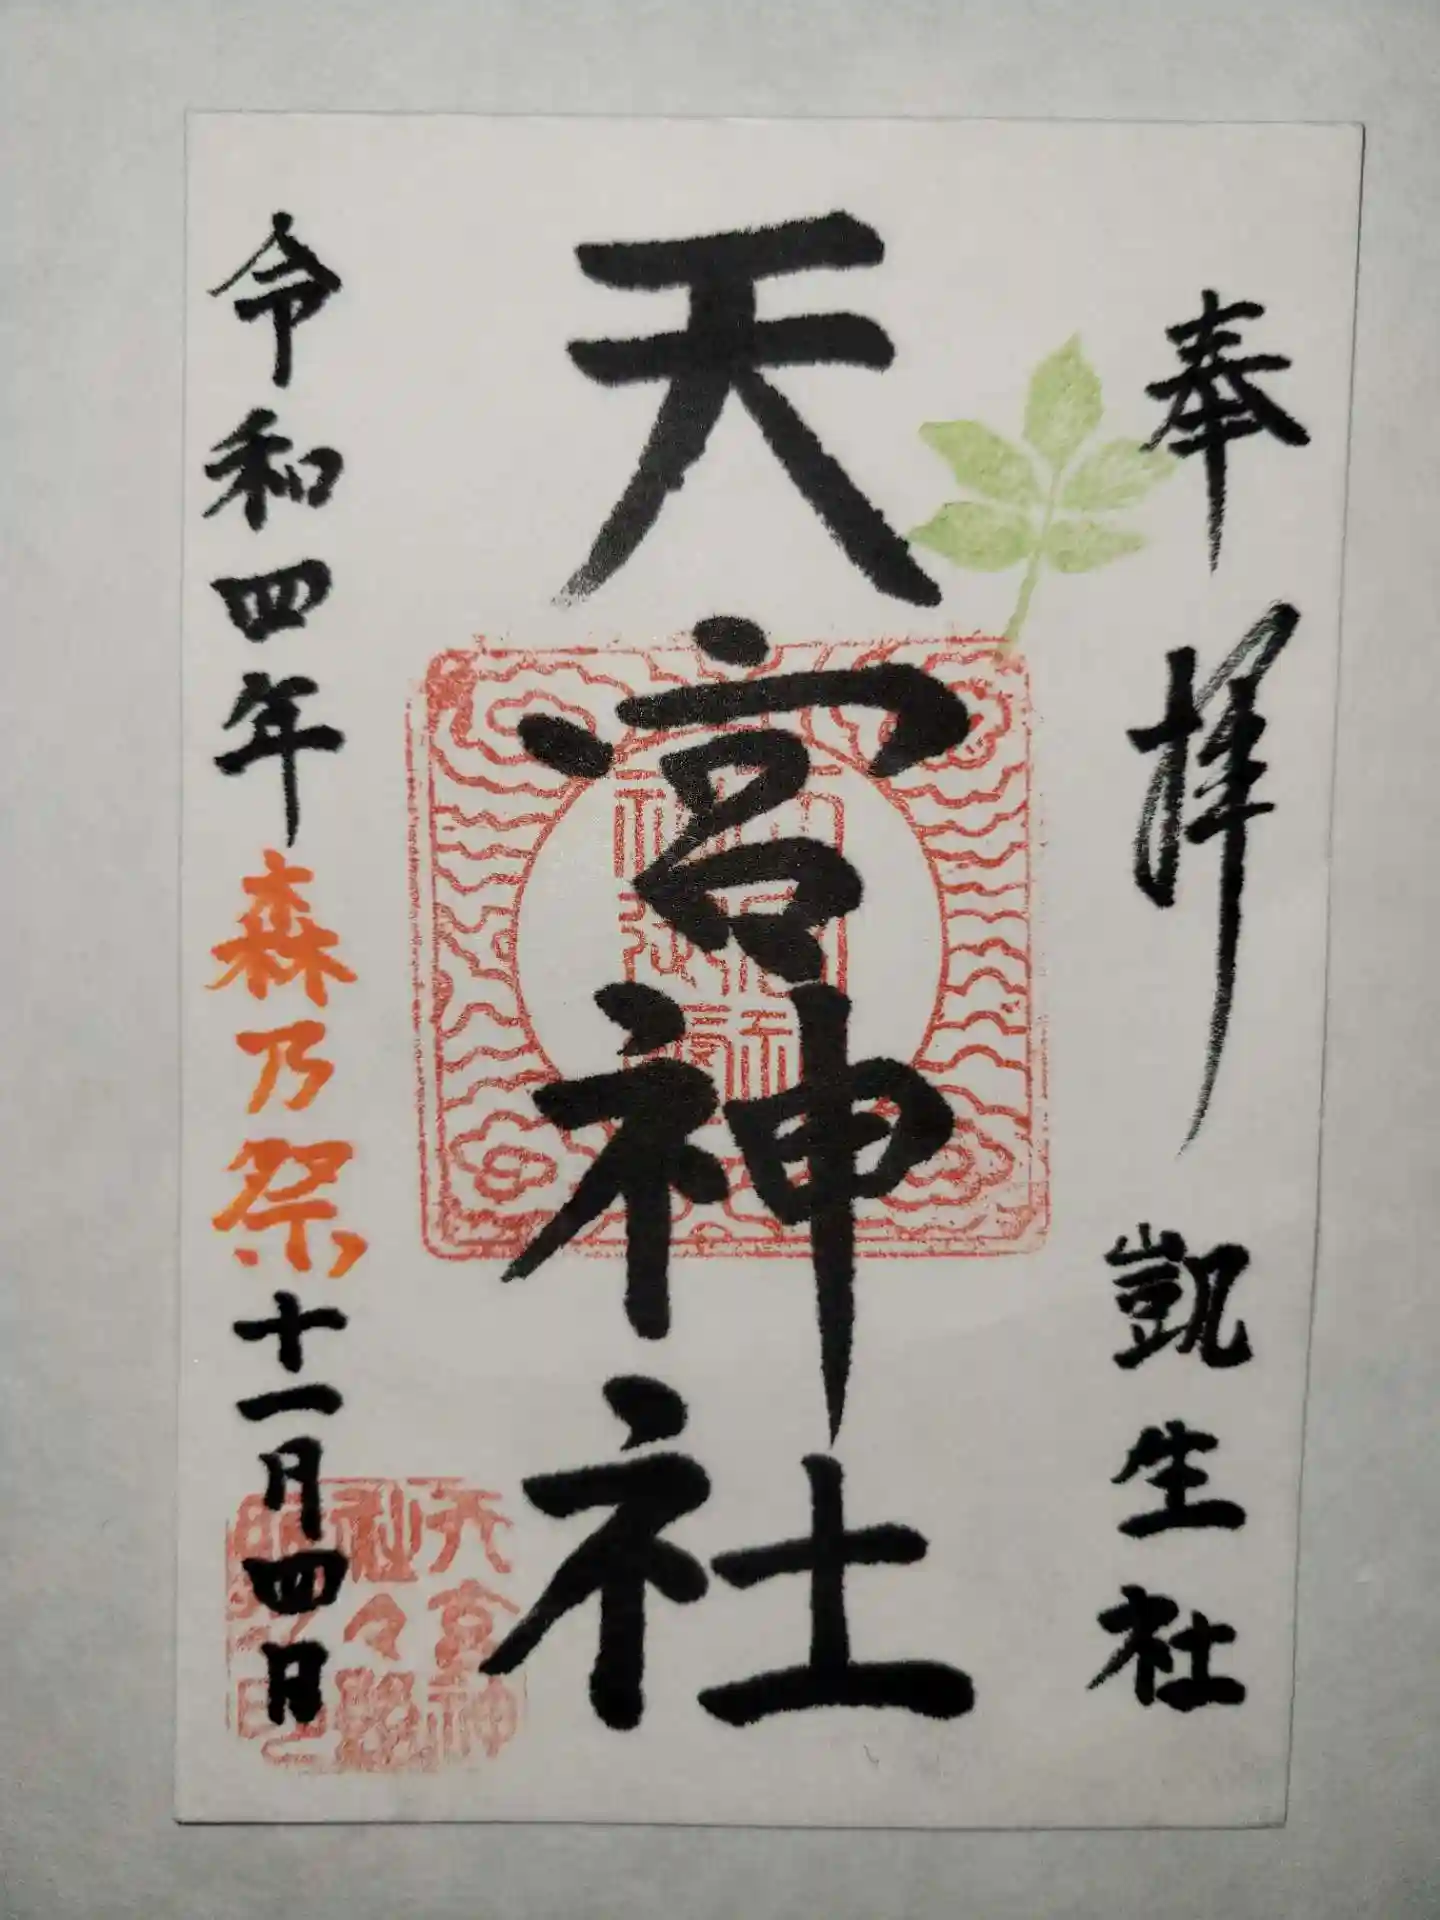 奉拝 凱生社
天宮神社
令和四年森乃祭十一月四日